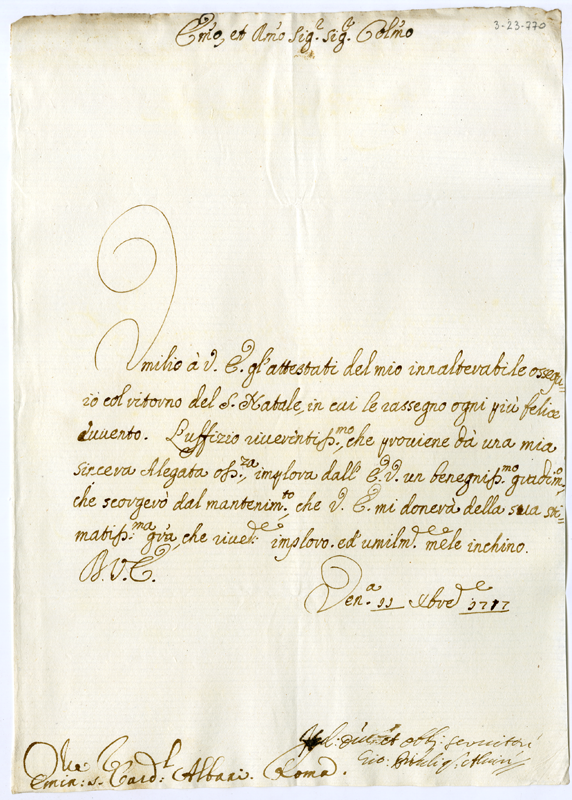 3-23-770
Em̃o, et Rm̃o Sig.r Sig.r Colm̃o
Vmilio à V. E. gl'attestati del mio innalterabile ossequ-
io col ritorno del S. Natale, in cui le rassegno ogni più felice
Avvento. L'uffizio riverentiss.mo, che proviene dà una mia
sincera Alegata oss.za, implora dall' E. V. un benegniss.mo gradim.o
che scorgerò dal mantenim.to, che V. E. mi donerà della sua sti-
matiss.ma grã, che rivet.e imploro. ed umilm.te me le inchino.
B. V. E.
Ven.a 11 Xbre 1717
obl: servitore
Gio:
Emin: S. Card.l Albani. Roma.